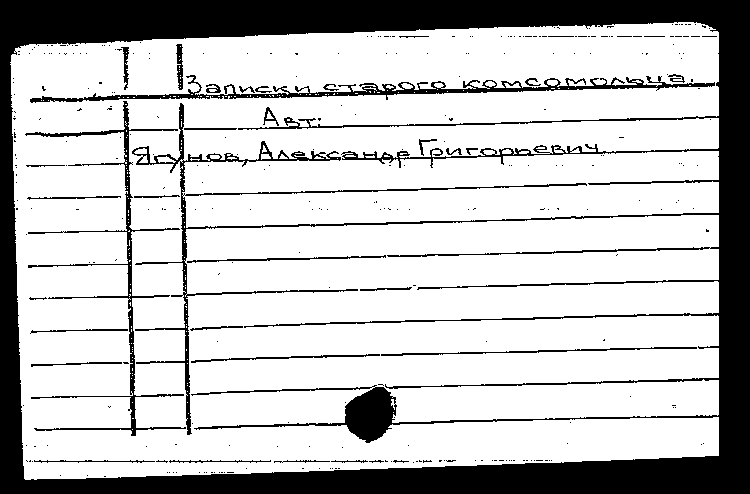 Записки старого комсомольца.
Авт:
Ягунов, Александр Григорьевич